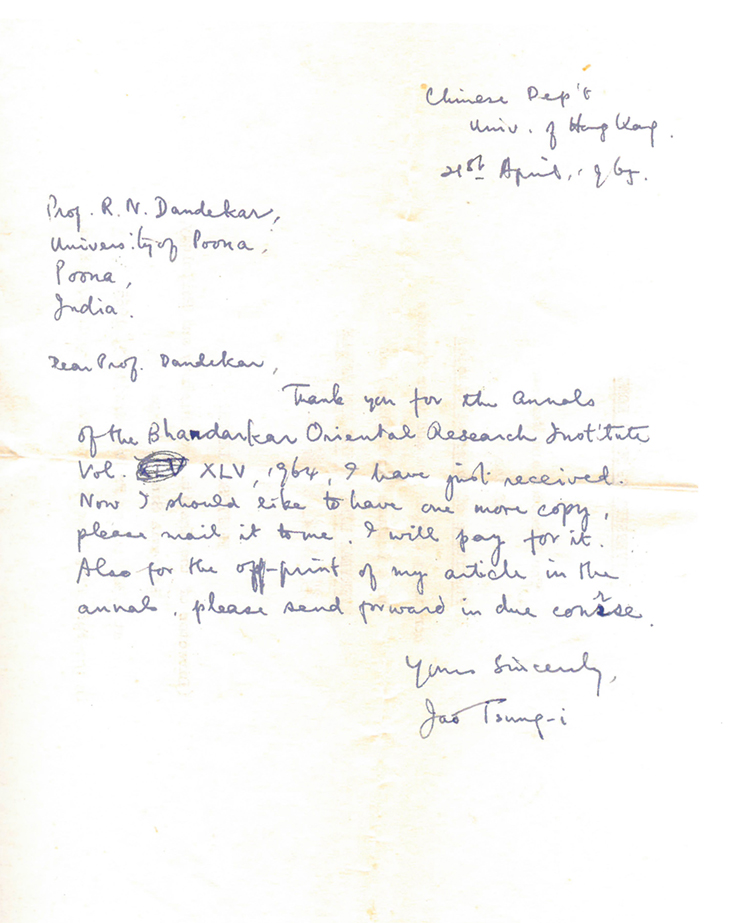 Chinese Dep't
Univ. of Hong Kong.
21st April, 1965.
Prof. R. N. Dandekar,
University of Poona,
Poona,
India.
Dear Prof. Dandekar,
Thank you for the Annals
of the Bhandarkar Oriental Research Institute
Vol. XLV, 1964, I have just received.
Now I should like to have one more copy,
please mail it to me. I will pay for it.
Also for the off-print of my article in the
annals. please send forward in due course.
Yours Sincerely,
Jao Tsung-i